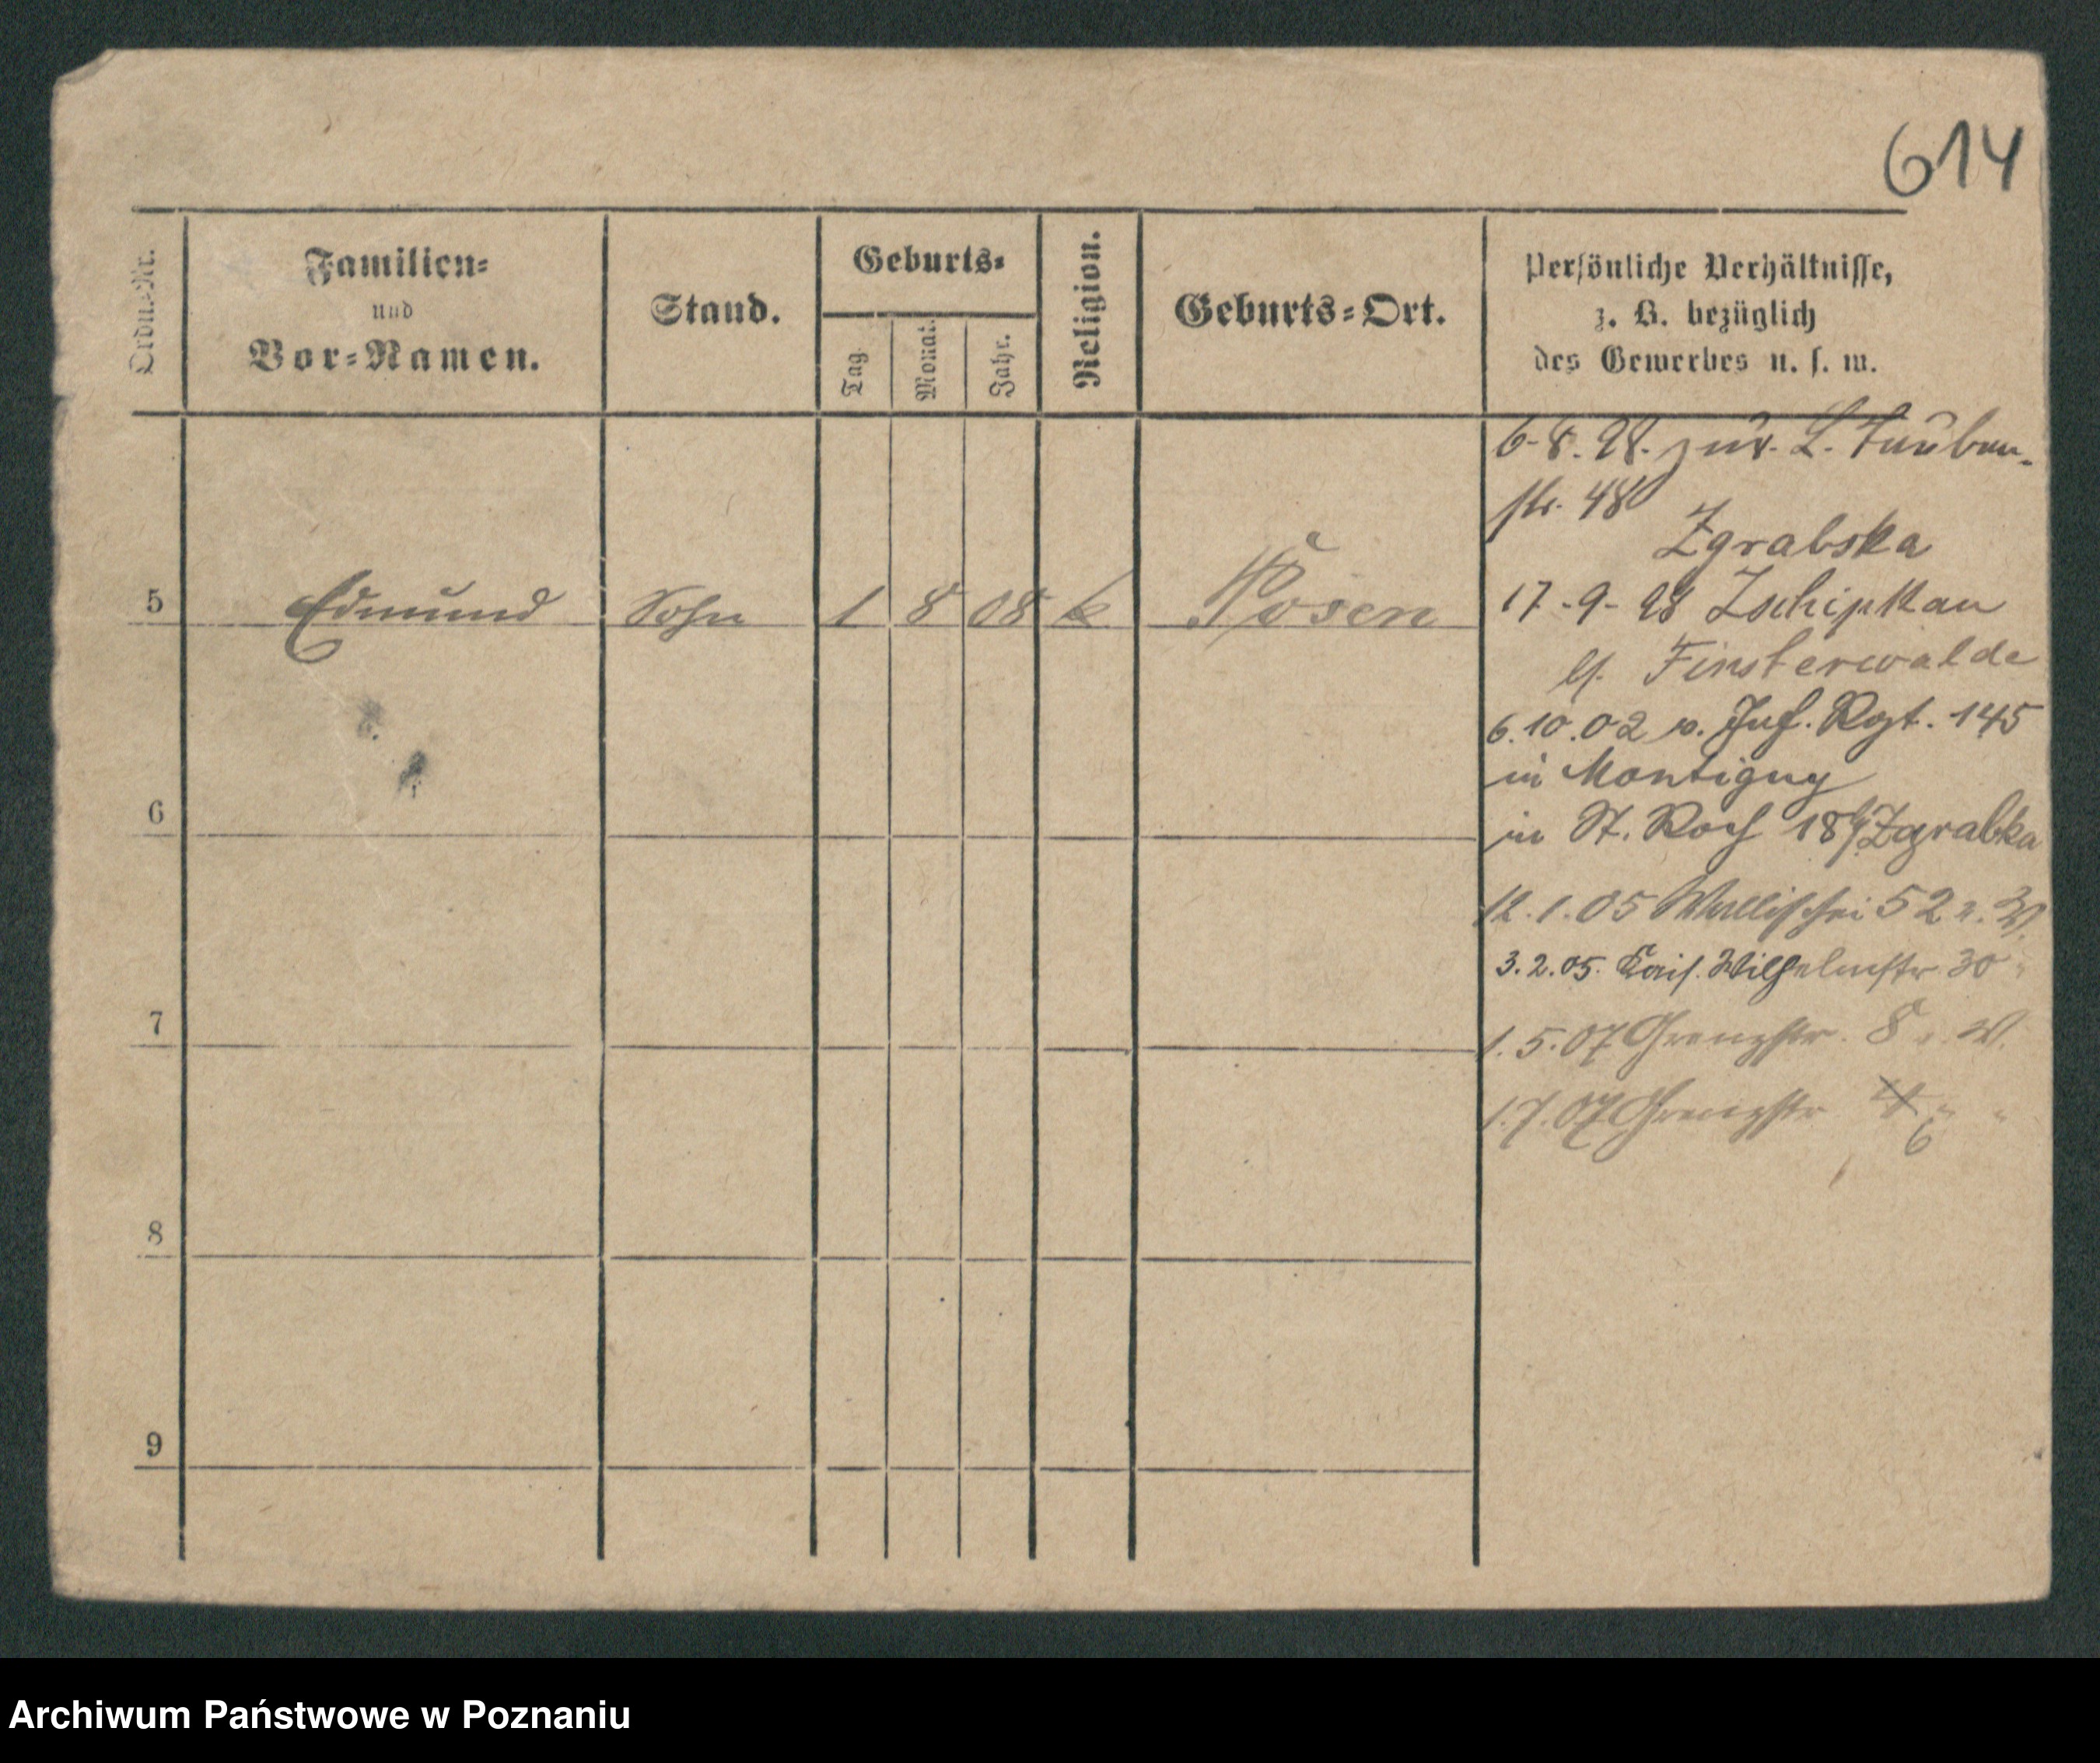 614
Ordn.-Nr.
Familien-
und
Vor-Namen.
Stand.
Geburts-
Tag.
Monat.
Jahr.
Religion.
Geburts-Ort.
Persönliche Verhältnisse,
z. B. bezüglich
des Gewerbes u. s. w.
5 Edmund Sohn 1 8 08 k Posen
6
7
8
9
6-8.98. zur. L. Tauben-
str. 48
Zgrabska
17-9-98 Zschipkau
Finsterwalde
6.10.02 v. Inf. Rgt. 145
in Montigny
in St. Roch 18 Zgrabka
12.1.05 Wallischei 52 b. W.
3.2.05. Kais. Wilhelmstr. 30 "
1.5.07 Grenzstr. 8 W.
1.7.07 Grenzstr 6 " "
Archiwum Państwowe w Poznaniu